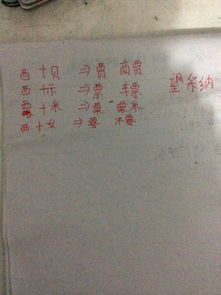 西十贝 ⇒ 贾 商贾
西十示 ⇒ 票 车票
覀十米 ⇒ 粟 粟米
西十女 ⇒ 要 不要
望采纳